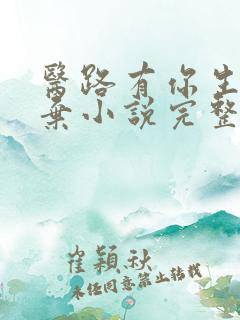 醫路有你生
棄小說完整
崔穎秋
未經同意禁止轉載